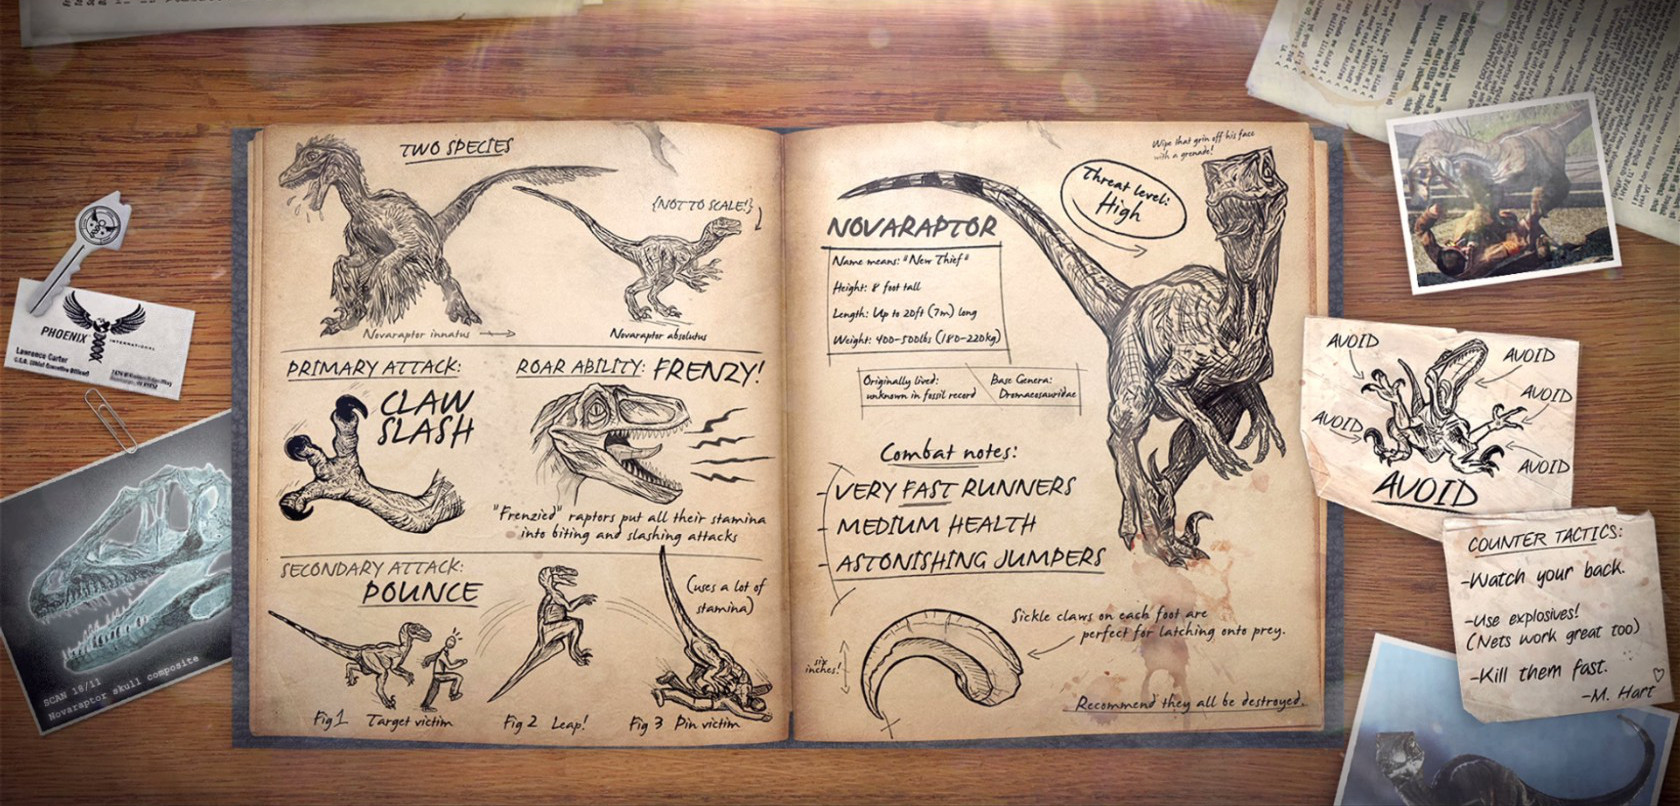 TWO SPECIES
{NOT TO SCALE!}
Novaraptor innatus
Novaraptor absolutus
PRIMARY ATTACK:
CLAW
SLASH
ROAR ABILITY: FRENZY!
"Frenzied" raptors put all their stamina
into biting and slashing attacks
SECONDARY ATTACK:
POUNCE
(uses a lot of
stamina)
Fig 1 Target victim
Fig 2 Leap!
Fig 3 Pin victim
Wipe that grin off his face
with a grenade!
Threat level:
High
NOVARAPTOR
Name means: "New Thief"
Height: 8 foot tall
Length: Up to 20ft (7m) long
Weight: 400-500lbs (180-220kg)
Originally lived:
unknown in fossil record
Base Genera:
Dromaeosauridae
Combat notes:
- VERY FAST RUNNERS
- MEDIUM HEALTH
- ASTONISHING JUMPERS
Sickle claws on each foot are
perfect for latching onto prey.
six
inches!
Recommend they all be destroyed.
PHOENIX
INTERNATIONAL
Lawrence Carter
C.E.O. (Chief Executive Officer)
SCAN 18/11
Novaraptor skull composite
AVOID
AVOID
AVOID
AVOID
AVOID
AVOID
COUNTER TACTICS:
-Watch your back.
-Use explosives!
(Nets work great too)
-Kill them fast.
-M. Hart